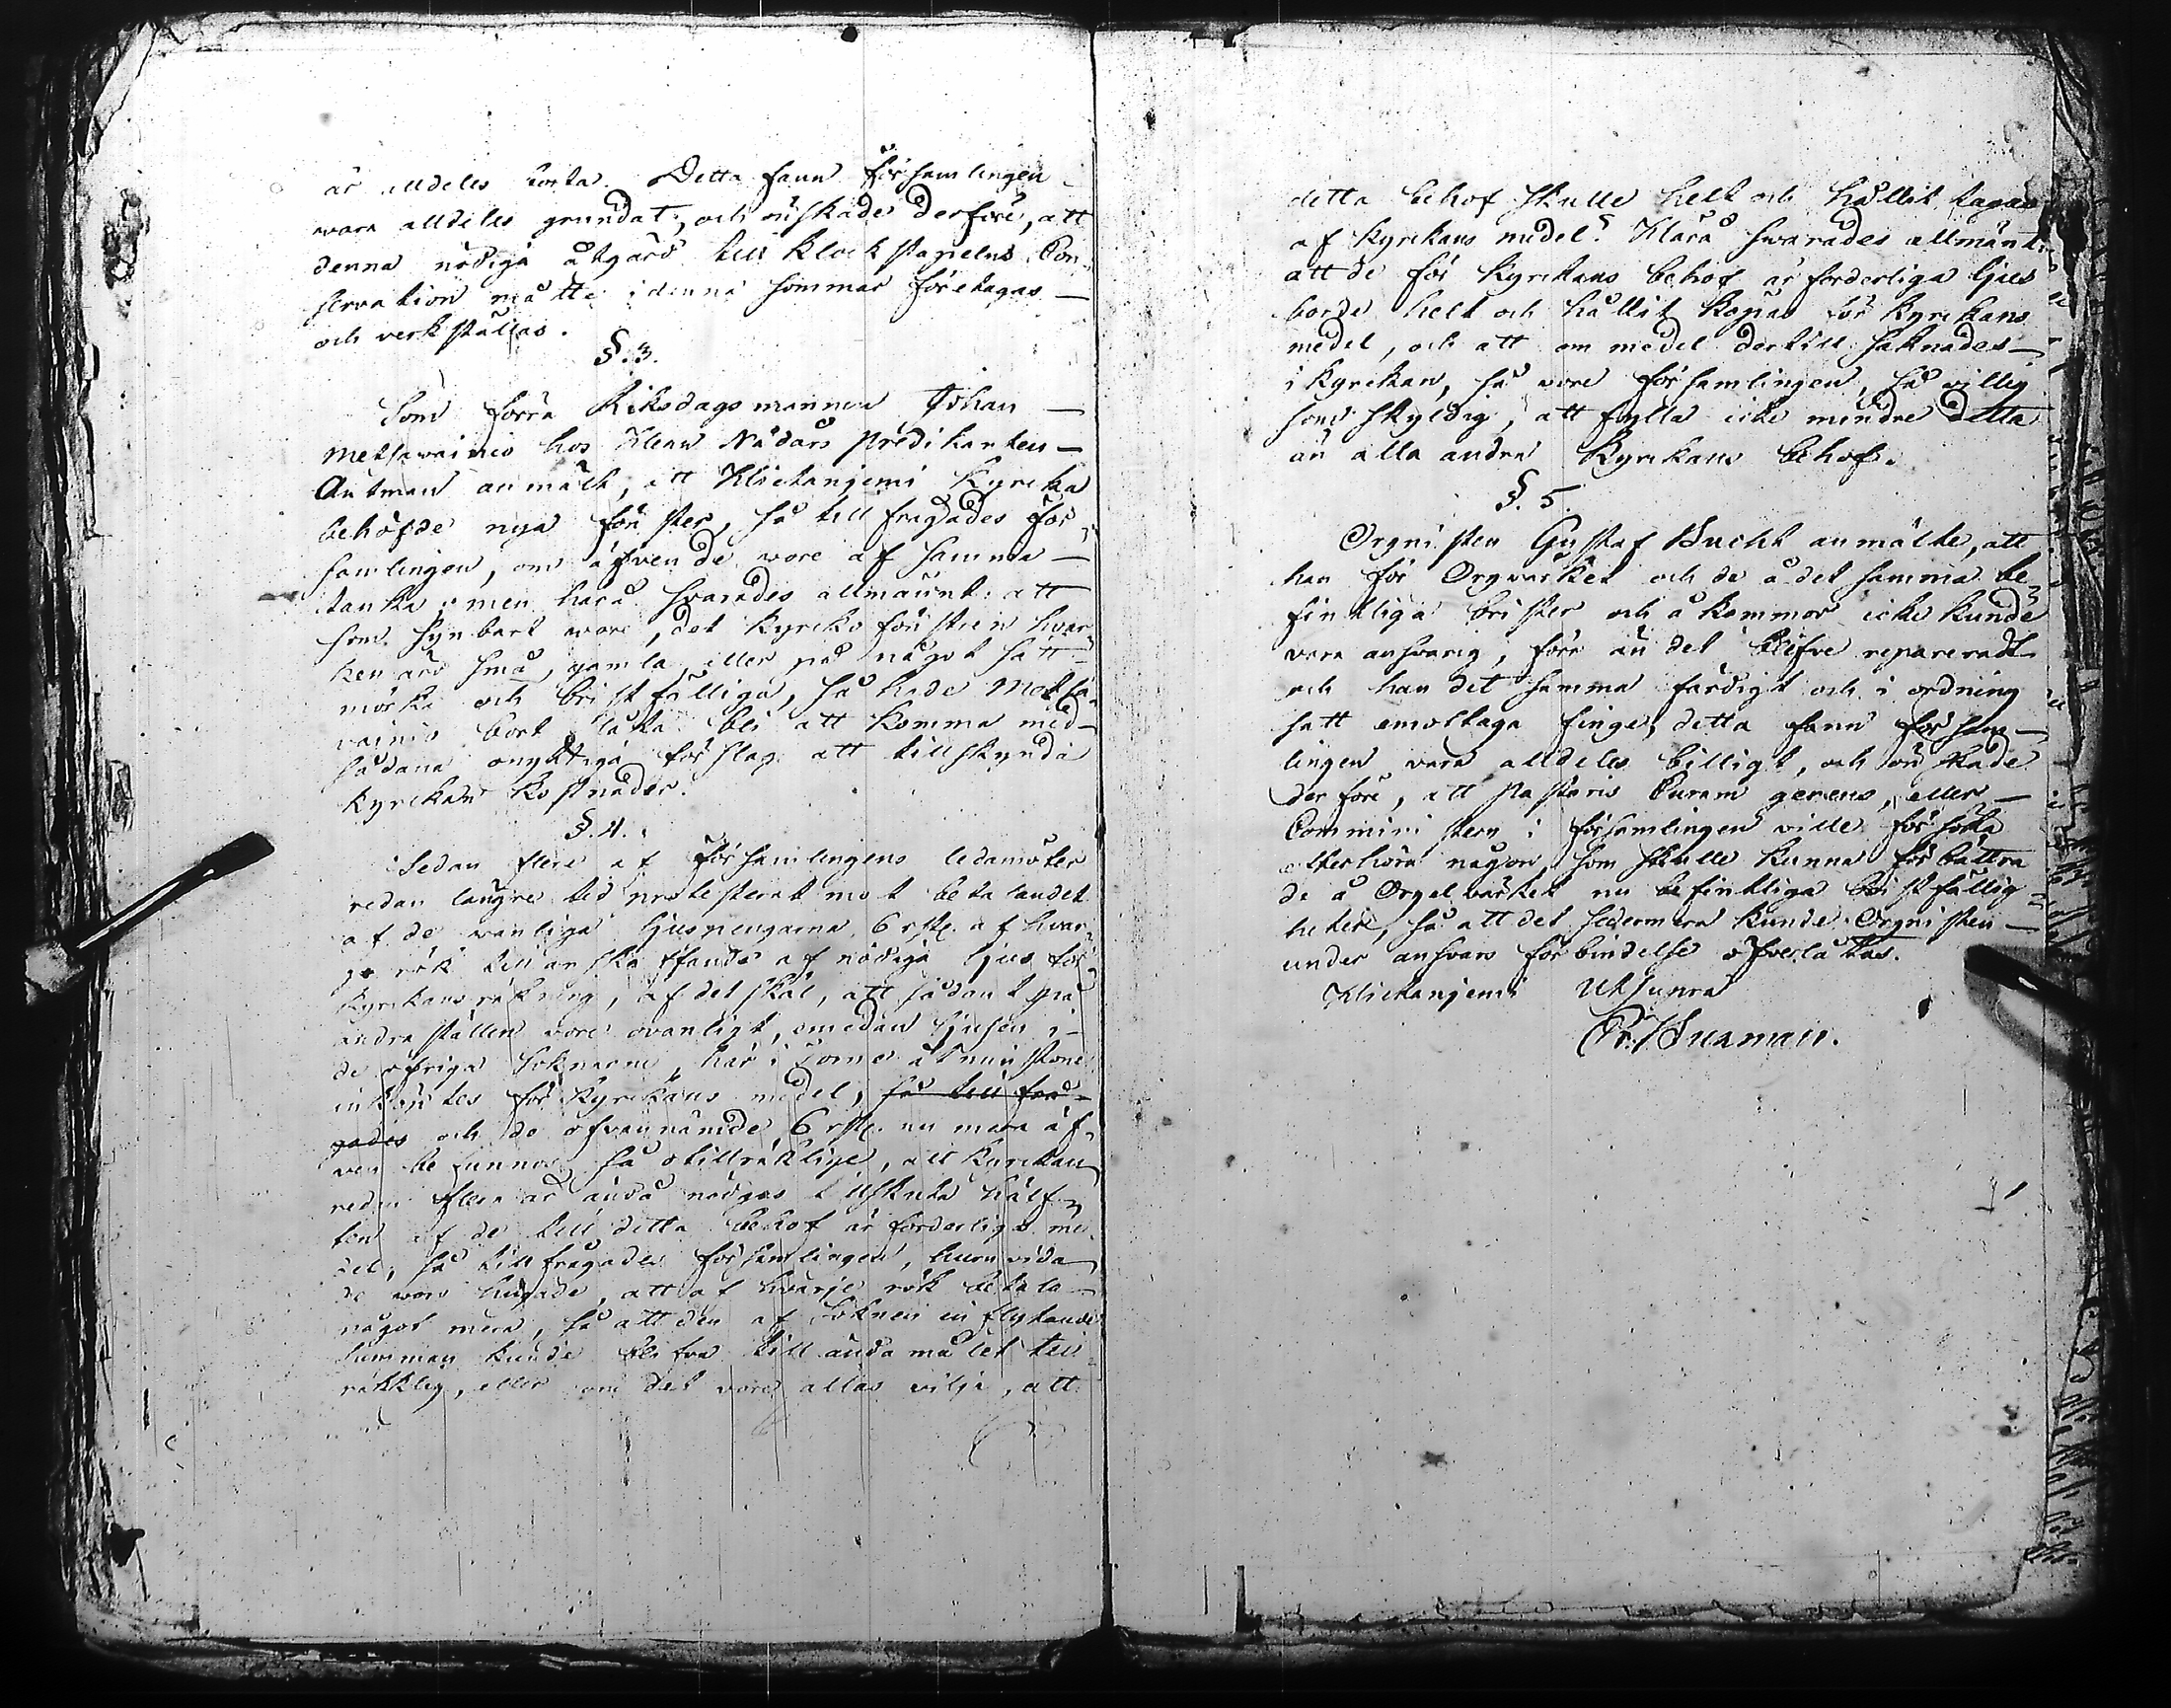 är alldeles borta. Detta fann församlingen
vara alldeles grundat, och önskade derföre, att
denna nödiga åtgärd till Klockstapelns Con-
servation måtte i denna sommar företagas —
och verkställas.
§. 3.
Som förra Riksdagsmannen Johan —
Metsavainio hos Herr Nådårs Predikanten —
Antman anmält, att Hietaniemi Kyrcka
behöfde nya fönster, så tillfragades för-
samlingen, om äfven de vore af samma —
tanka; men härå svarades allmännt: att
som synbart vore, det Kyrko fönstren hvar-
ken äro små, gamla, eller på något sätt
mörka och bristfälliga, så hade Metsa-
vainio bort låta bli att komma med
sådana onyttiga förslag att tillskynda
Kyrckan kostnader.
§. 4.
Sedan flere af Församlingens ledamöter
redan längre tid protesterat mot betalandet
af de vanliga ljuspengarna, 6 rst. af hvar-
je rök till anskaffande af nödiga ljus för
Kyrckans räkning, af det skäl, att sådant på
andra ställen vore ovanligt, emedan ljusen i
de öfriga soknarne, här i Torneå åtminstone
inköptes för Kyrckans medel, så till frå-
gades och de ofvannämde 6 rst. nu mera äf-
ven befunnos så otillräklige, att Kyrckan
redan flere år ändå nödgas tillskuta hälf-
ten af de till detta behof ärforderliga me-
del, så tillfrågades församlingen, huruvida
de vore hugade, att af hvarje rök betala
något mera, så att den af Soknen inflytande
summan kunde blifva till ändamålet till-
räkklig, eller om det vore allas vilje, att
detta behof skulle helt och hållit tagas
af Kyrckans medel? Härå svarades allmänt:
att de för Kyrckans behof ärforderliga ljus
borde helt och hållit köpas för Kyrckans
medel, och att om medel dertill saknades —
i Kyrckan, så vore församlingen, så villig
som skyldig, att fylla icke mindre detta
än alla andra Kyrckans behof.
§. 5.
Orgnisten Gustaf Bucht anmälte, att
han för Orgvärket och de å det samma be-
finktliga brister och åkommor icke kunde
vara ansvarig, förr än det blifve repareradt
och han det samma färdigt och i ordning
satt emottaga finge; detta fann försam-
lingen vara alldeles billigt, och önskade
derföre, att Pastoris Curam gerens, eller —
Comministern i församlingen ville försöka
efterhöra någon, som skulle kunna förbättra
de å Orgelvärket nu befinktliga bristfällig-
heter, så att det sedermera kunde Orgnisten —
under ansvars förbindelse öfverlåtas.
Hietaniemi Ut supra